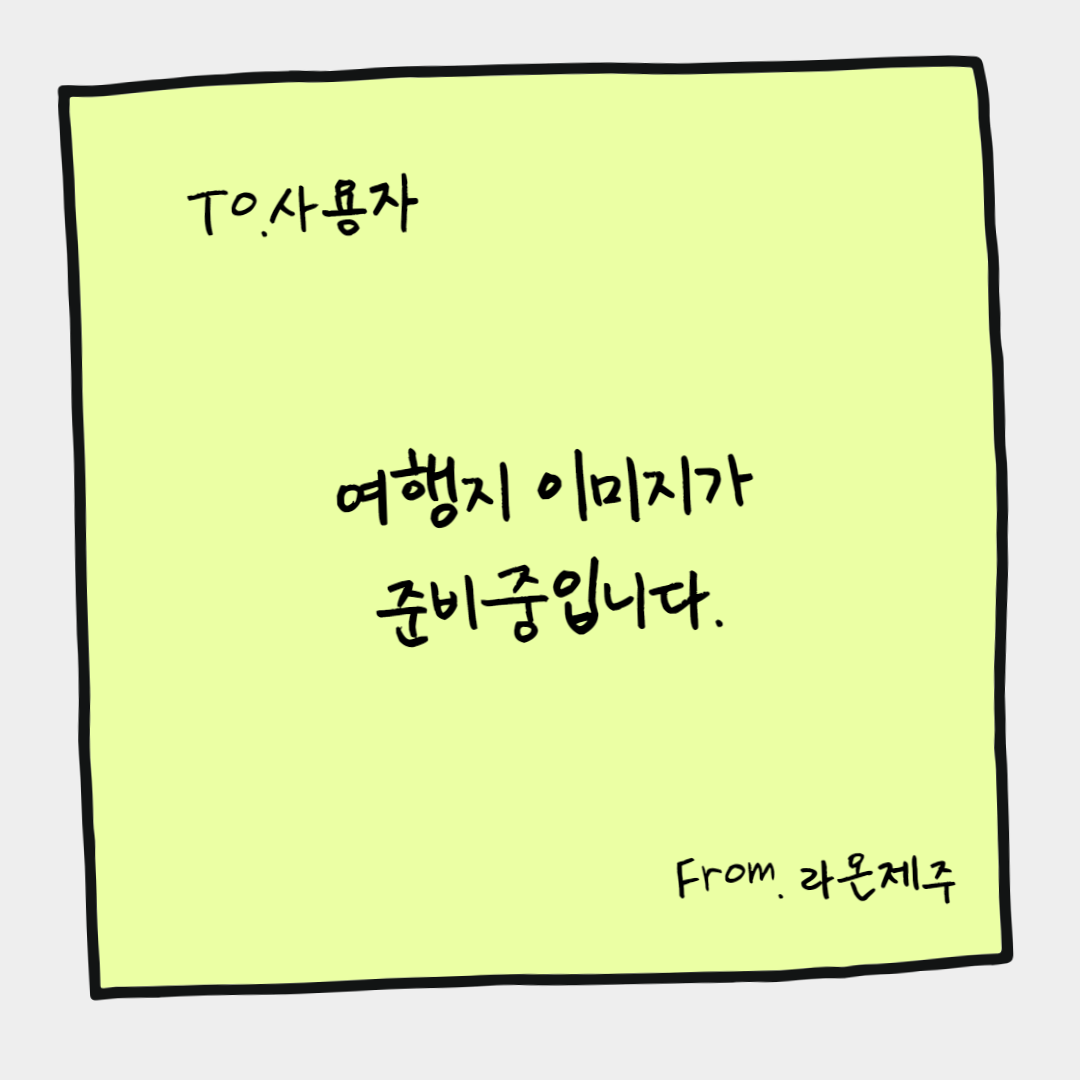 TO.사용자
여행지 이미지가
준비중입니다.
From. 라몬제주